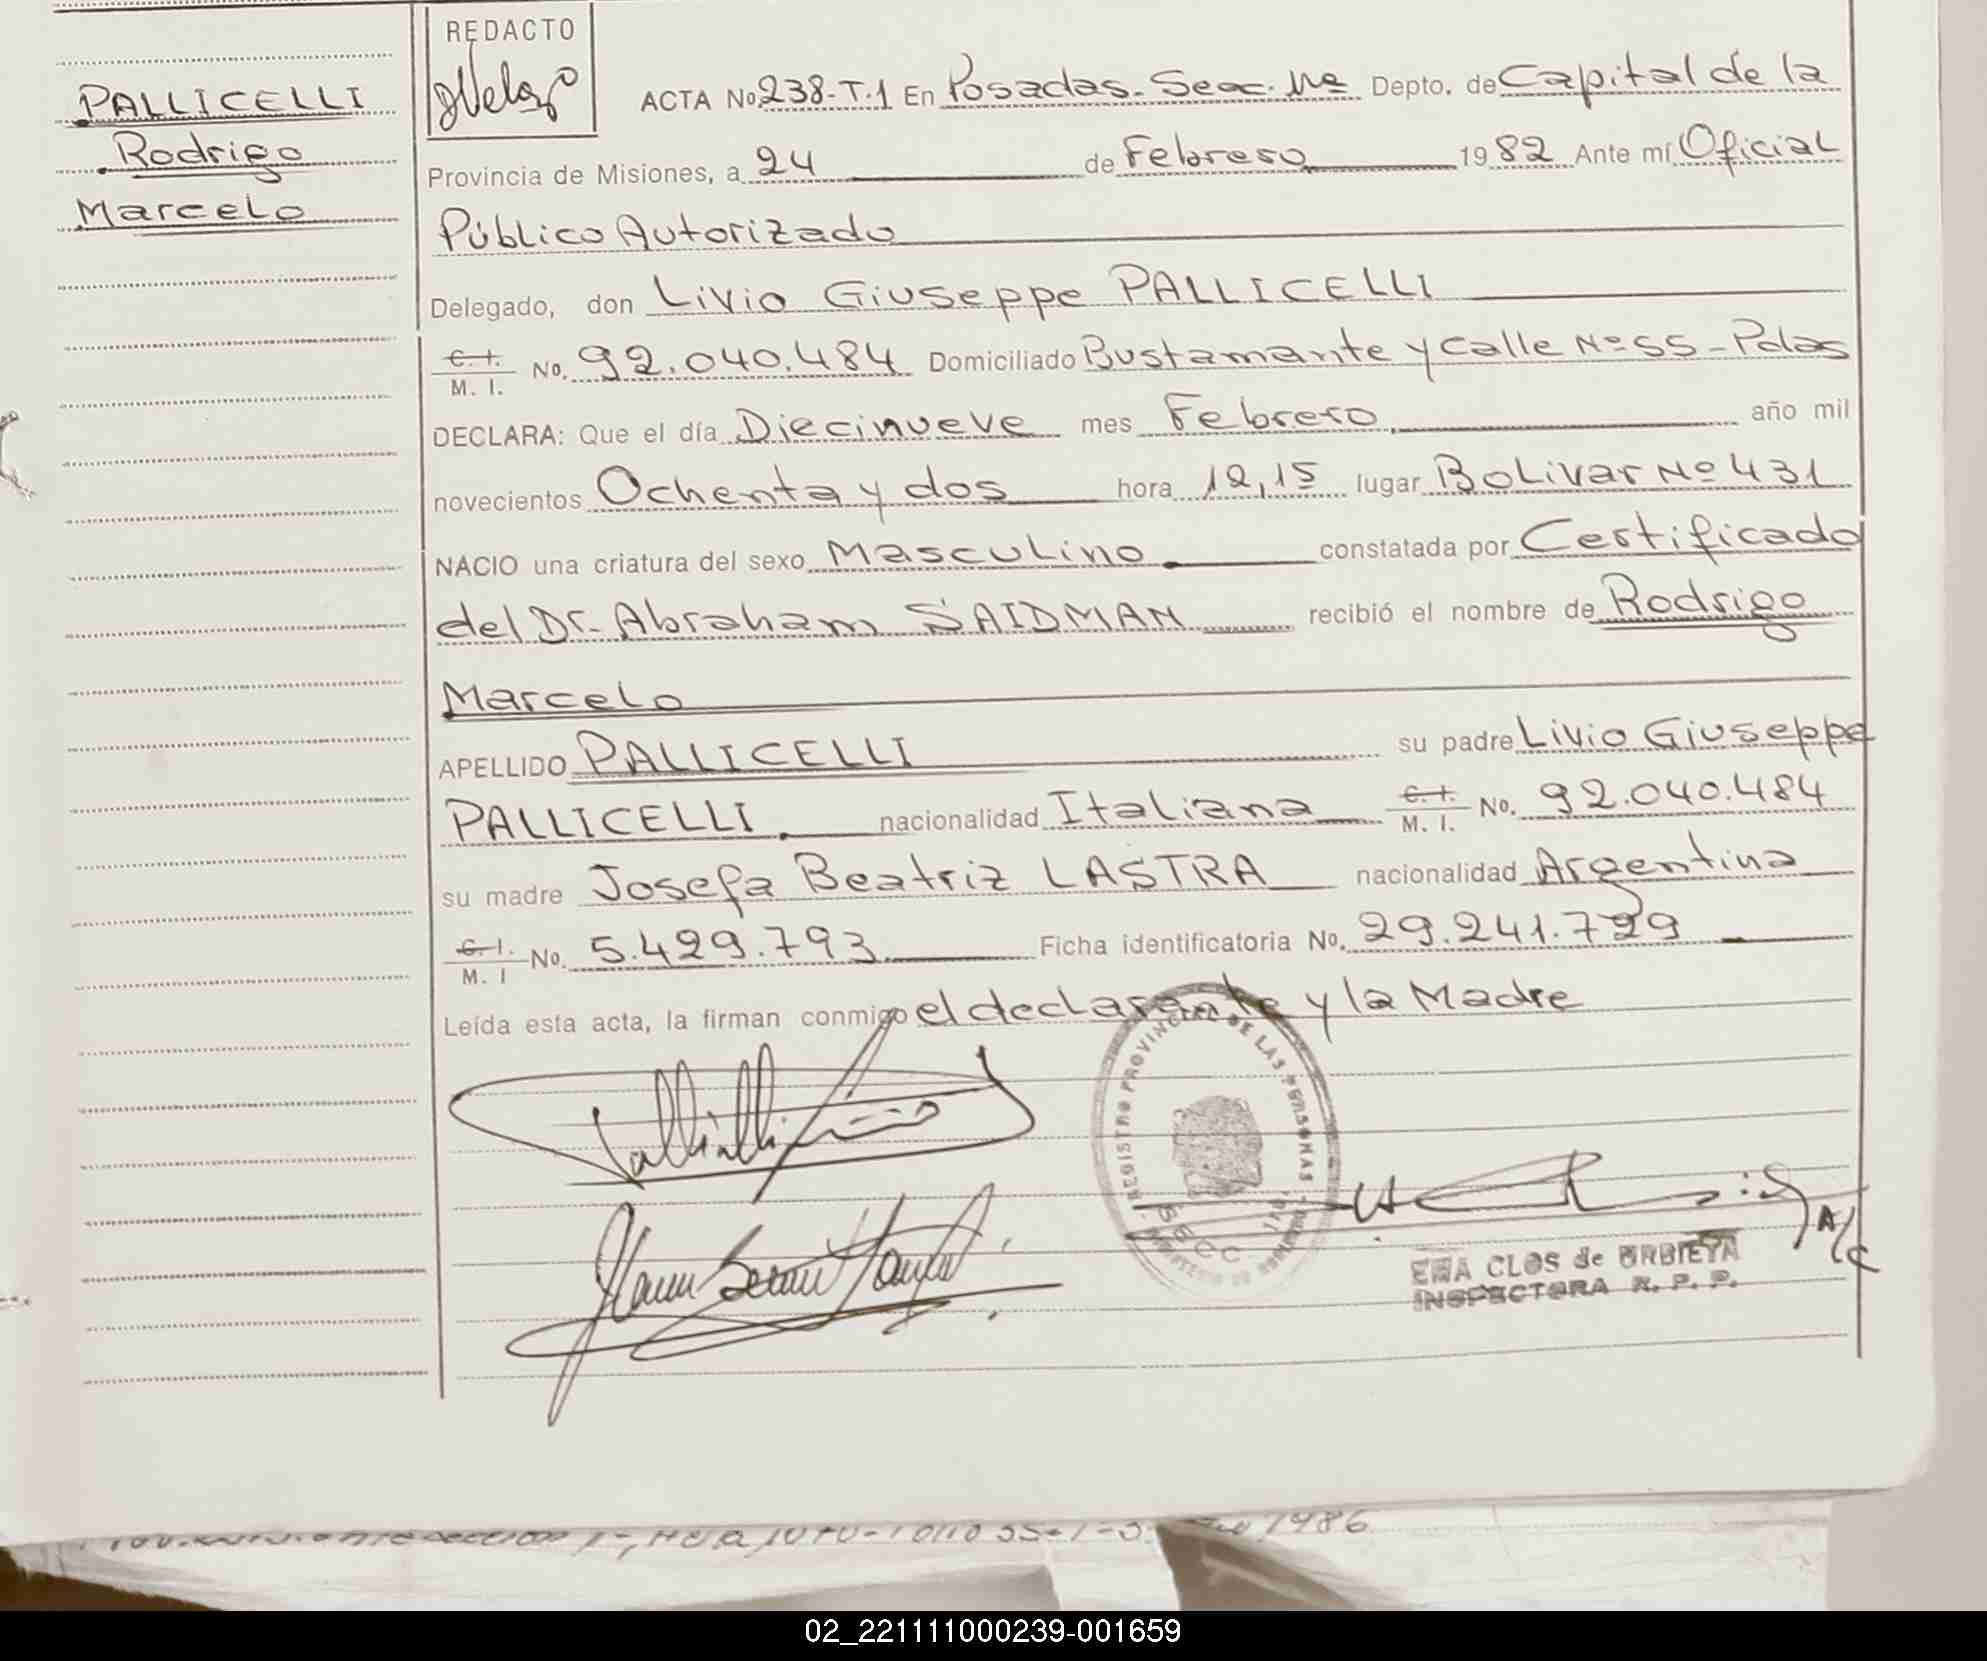 REDACTO
PALLICELLI
Rodrigo
Marcelo
ACTA No. 238-T.1 En Posadas.- Secc. Depto. de Capital de la
Provincia de Misiones, a 24 de Febrero 1982 Ante mí Oficial
Público Autorizado
Delegado, don Livio Giuseppe PALLICELLI
C. I. / M. I. No. 92.040.484 Domiciliado Bustamante y calle Nº 55 - Pdas
DECLARA: Que el día Diecinueve mes Febrero año mil
novecientos Ochenta y dos hora 12,15 lugar Bolivar Nº 431
NACIO una criatura del sexo Masculino constatada por Certificado
del Dr. Abraham SAIDMAN recibió el nombre de Rodrigo
Marcelo
APELLIDO PALLICELLI su padre Livio Giuseppe
PALLICELLI. nacionalidad Italiana C. I. / M. I. No. 92.040.484
su madre Josefa Beatriz LASTRA nacionalidad Argentina
C. I. / M. I No. 5.429.793 Ficha identificatoria No. 29.241.729
Leída esta acta, la firman conmigo el declarante y la Madre
REGISTRO PROVINCIAL DE LAS PERSONAS
A/C
CLOS de URBIETA
INSPECTORA R. P. P.
1986
02_221111000239-001659